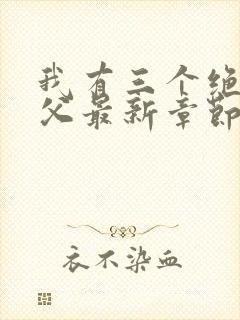 我有三个绝
父最新章節
衣不染血